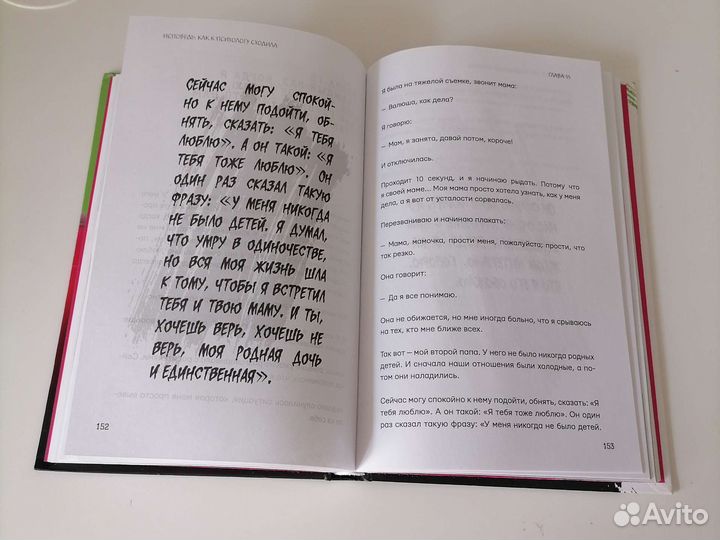 ИСПОВЕДЬ: КАК К ПСИХОЛОГУ СХОДИЛА
СЕЙЧАС МОГУ СПОКОЙ-
НО К НЕМУ ПОДОЙТИ, ОБ-
НЯТЬ, СКАЗАТЬ: «Я ТЕБЯ
ЛЮБЛЮ». А ОН ТАКОЙ: «Я
ТЕБЯ ТОЖЕ ЛЮБЛЮ». ОН
ОДИН РАЗ СКАЗАЛ ТАКУЮ
ФРАЗУ: «У МЕНЯ НИКОГДА
НЕ БЫЛО ДЕТЕЙ. Я ДУМАЛ,
ЧТО УМРУ В ОДИНОЧЕСТВЕ,
НО ВСЯ МОЯ ЖИЗНЬ ШЛА
К ТОМУ, ЧТОБЫ Я ВСТРЕТИЛ
ТЕБЯ И ТВОЮ МАМУ. И ТЫ,
ХОЧЕШЬ ВЕРЬ, ХОЧЕШЬ НЕ
ВЕРЬ, МОЯ РОДНАЯ ДОЧЬ
И ЕДИНСТВЕННАЯ».
152
ГЛАВА 11
Я была на тяжелой съемке, звонит мама:
– Валюша, как дела?
Я говорю:
– Мам, я занята, давай потом, короче!
И отключилась.
Проходит 10 секунд, и я начинаю рыдать. Потому что
я своей маме... Моя мама просто хотела узнать, как у меня
дела, а я вот от усталости сорвалась.
Перезваниваю и начинаю плакать:
– Мама, мамочка, прости меня, пожалуйста; прости, что
так резко.
Она говорит:
– Да я все понимаю.
Она не обижается, но мне иногда больно, что я срываюсь
на тех, кто мне ближе всех.
Так вот – мой второй папа. У него не было никогда родных
детей. И сначала наши отношения были холодные, а по-
том они наладились.
Сейчас могу спокойно к нему подойти, обнять, сказать: «Я
тебя люблю». А он такой: «Я тебя тоже люблю». Он один
раз сказал такую фразу: «У меня никогда не было детей.
153
Avito